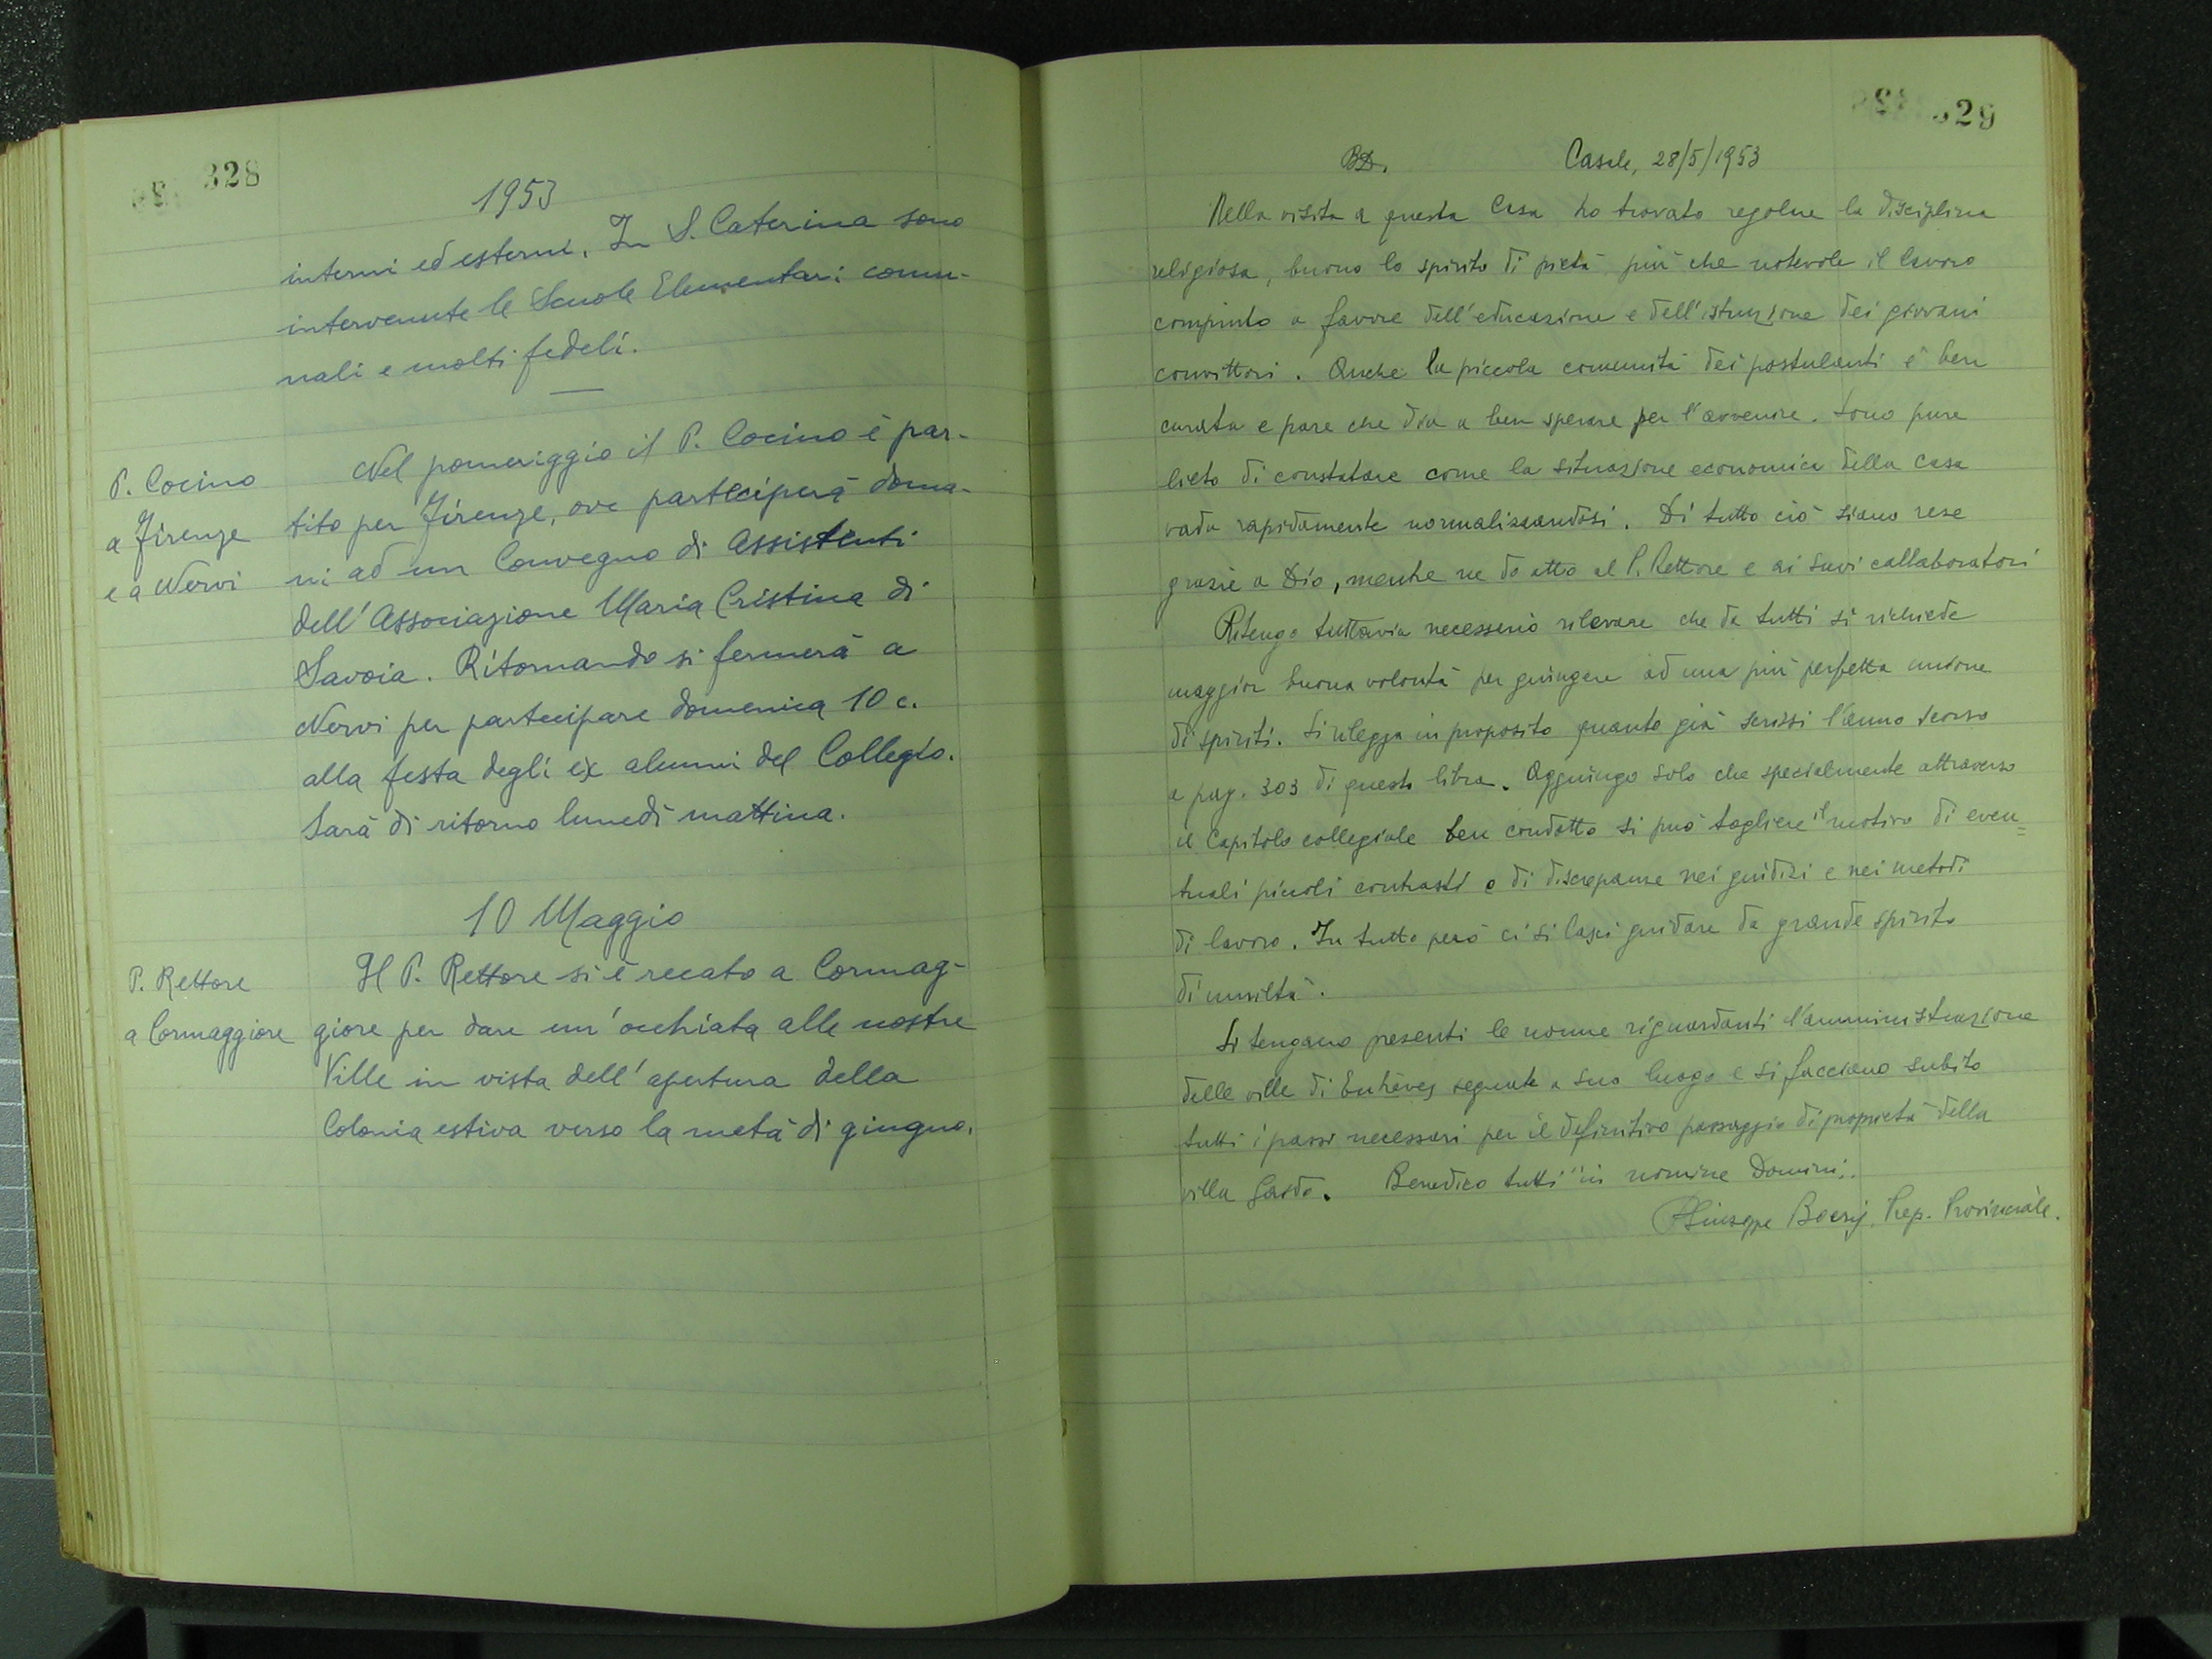 328
1953
interni ed esterni. In S. Caterina sono
intervenute le Scuole Elementari comu-
nali e molti fedeli.
P. Cocino
a Firenze
e a Nervi
Nel pomeriggio il P. Cocino è par-
tito per Firenze, ove parteciperà doma-
ni ad un Convegno di Assistenti
dell'Associazione Maria Cristina di
Savoia. Ritornando si fermerà a
Nervi per partecipare domenica 10 c.
alla festa degli ex alunni del Collegio.
Sarà di ritorno lunedì mattina.
10 Maggio
P. Rettore
a Cormaggiore
Il P. Rettore si è recato a Cormag-
giore per dare un'occhiata alle nostre
Ville in vista dell'apertura della
Colonia estiva verso la metà di giugno.
329
BD. Casale, 28/5/1953
Nella visita a questa Casa ho trovato regolare la disciplina
religiosa, buono lo spirito di pietà più che notevole il lavoro
compiuto a favore dell'educazione e dell'istruzione dei giovani
convittori. Anche la piccola comunità dei postulanti è ben
curata e pare che dia a ben sperare per l'avvenire. Sono pure
lieto di constatare come la situazione economica della casa
vada rapidamente normalizzandosi. Di tutto ciò siano rese
grazie a Dio, mentre ne do atto al P. Rettore e ai suoi collaboratori
Ritengo tuttavia necessario rilevare che da tutti si richiede
maggior buona volontà per giungere ad una più perfetta unione
di spiriti. Si rilegga in proposito quanto già scrissi l'anno scorso
a pag. 303 di questo libro. Aggiungo solo che specialmente attraverso
il Capitolo collegiale ben condotto si può togliere il motivo di even=
tuali piccoli contrasti e di discrepanze nei giudizi e nei metodi
di lavoro. In tutto però ci si lasci guidare da grande spirito
di umiltà.
Si tengano presenti le norme riguardanti l'amministrazione
delle ville di Entrèves segnate a suo luogo e si facciano subito
tutti i passi necessari per il definitivo passaggio di proprietà della
villa Gardo. Benedico tutti "in nomine Domini".
P. Giuseppe Boeris, Prep. Provinciale.